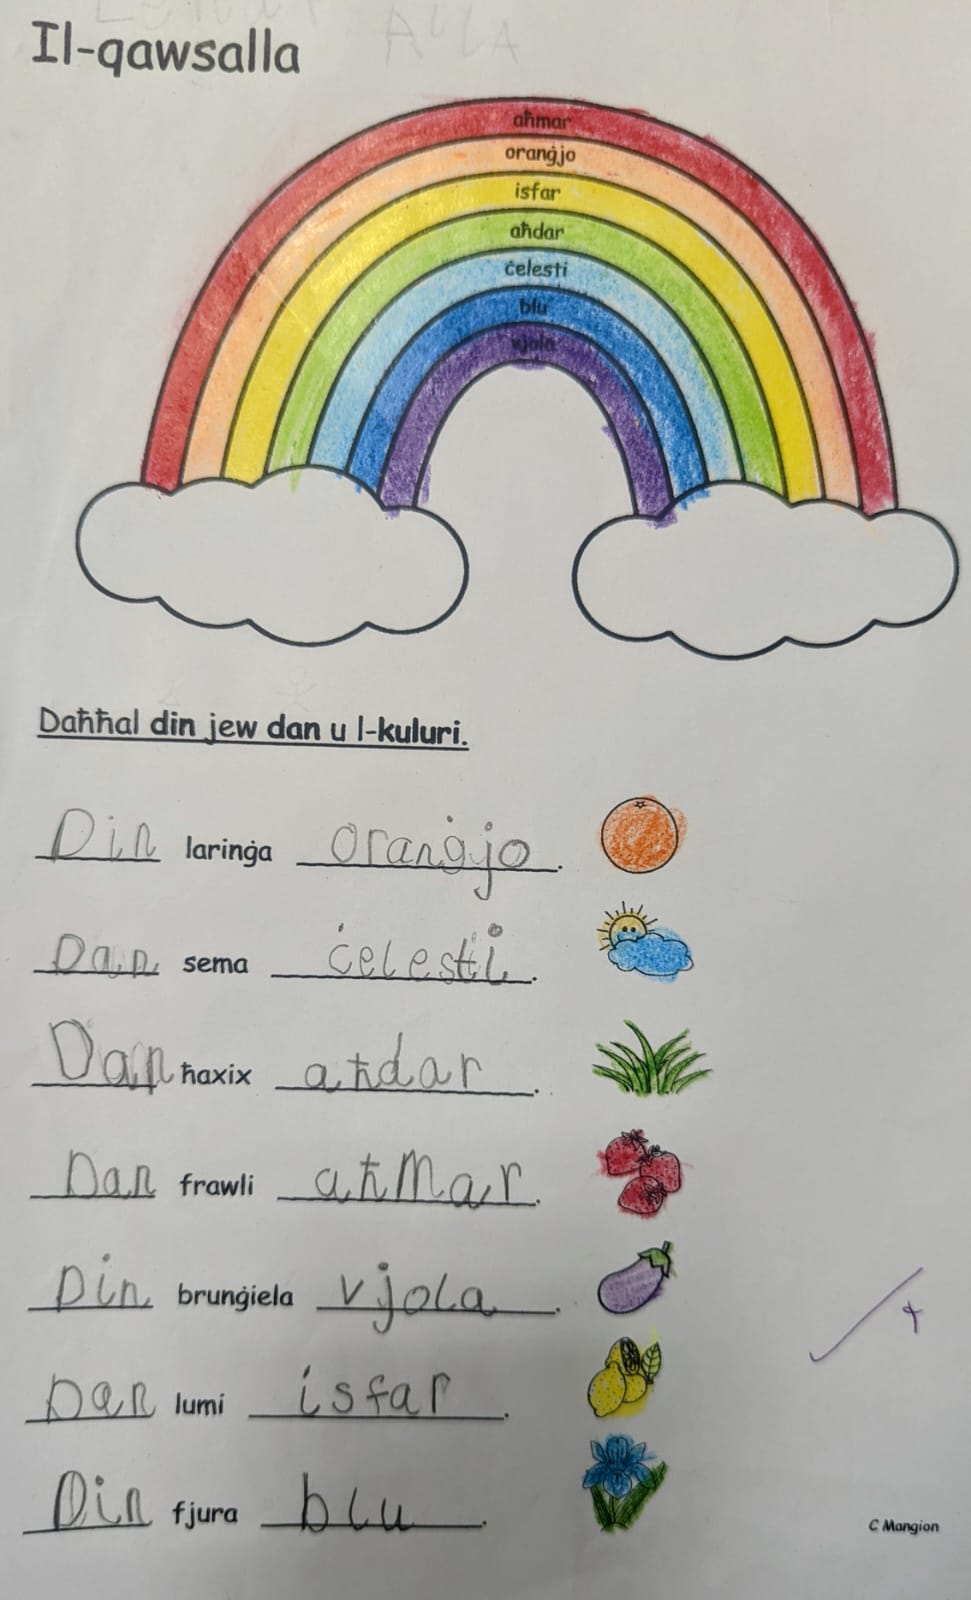 Il-qawsalla
aħmar
oranġjo
isfar
aħdar
ċelesti
blu
vjola
Daħħal din jew dan u l-kuluri.
Din laringa oranġjo.
Dan sema ċelesti.
Dan ħaxix aħdar.
Dan frawli aħmar.
Din brunġiela vjola.
Dan lumi isfar.
Din fjura blu.
C Mangion